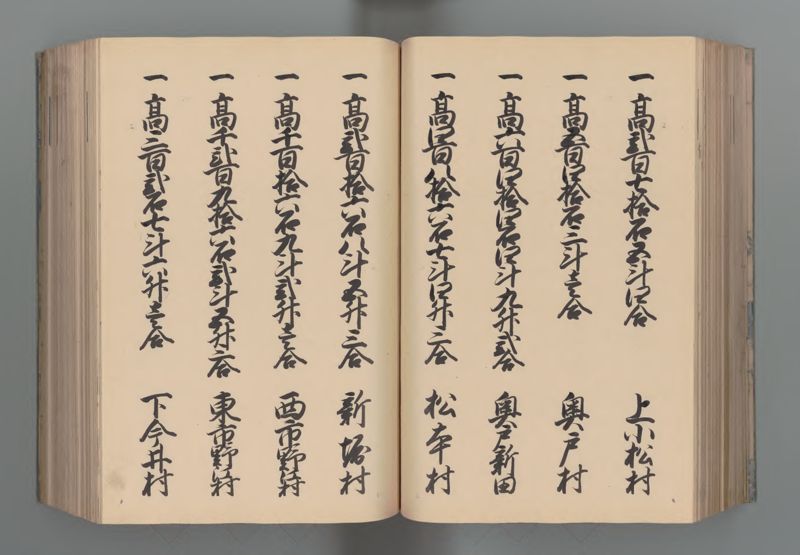 一高弐百七拾石五斗四合 上小松村
一高五百四拾石三斗壱合 奥戸村
一高六百四拾四石四斗九升弐合 奥戸新田
一高四百八拾六石七斗四升三合 松本村
一高弐百拾六石八斗五升三合 新堀村
一高千百拾六石九斗弐升壱合 西市野江村
一高千弐百九拾六石弐斗五升六合 東市野江村
一高三百弐石七斗六升壱合 下今井村